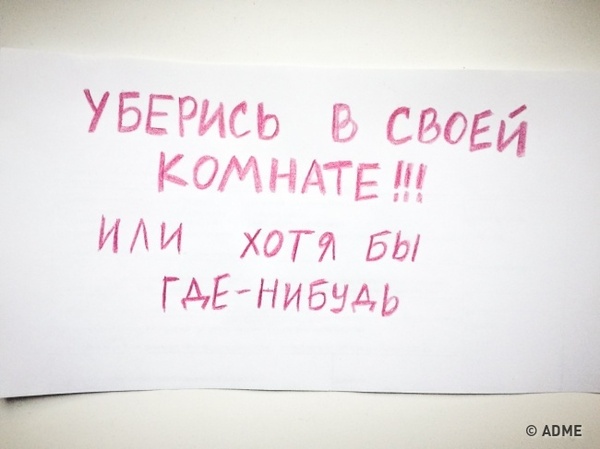 УБЕРИСЬ В СВОЕЙ
КОМНАТЕ!!!
ИЛИ ХОТЯ БЫ
ГДЕ-НИБУДЬ
© ADME